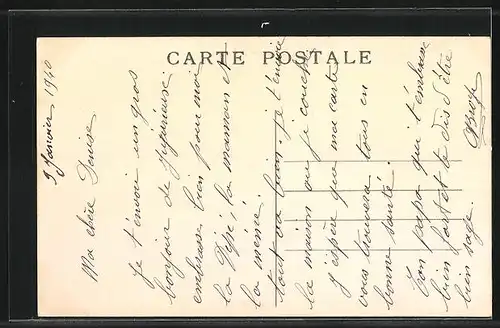 CARTE POSTALE
9 Janvier 1940
Ma chère Denise,
Je t'envoie un gros
bonjour de
embrasse bien pour moi
la maman et
la mémé.
tout va bien. je t'envoie
la maison ou je couche
J'espère que ma carte
vous trouvera tous en
bonne santé.
Ton papa qui t'embrasse
bien fort et te dis d'être
bien sage.